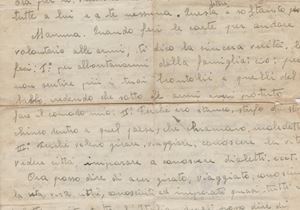 ora per
tutte a lui e a te nessuna. Questa è
Mamma. Quando feci le carte per andare
volontario alle armi, ti dico da sincera verità, lo
feci: Iº per allontanarmi dalla famiglia:
non sentire più i tuoi brontolii e quelli del
babbo, vedendo che sotto le armi avrei potuto
fare il comodo mio. IIº Perchè ero stanco, stufo di star
chiuso dentro a quel paese, che chiamavo, maledetto
IIIº Perchè volevo girare, viaggiare, conoscere la vita
vedere città, imparare a conoscere dialetti,
Ora posso dire di aver girato, viaggiato, conosciuto
la vita, vista città, conosciuti ed imparato quasi tutti
di